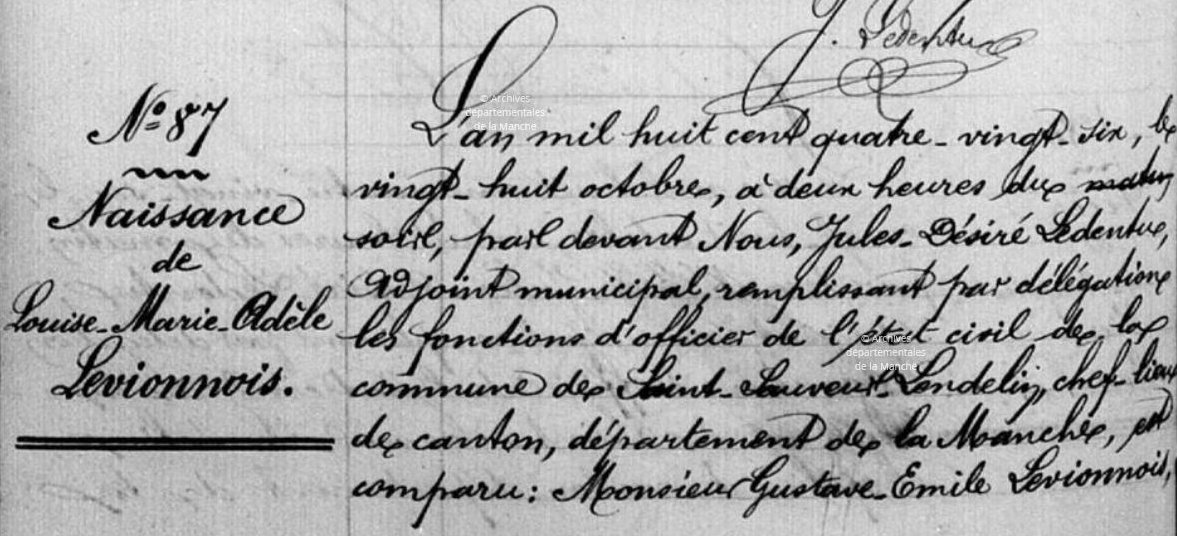 J. Ledentu
© Archives
départementales
de la Manche
Nº 87
Naissance
de
Louise-Marie-Adèle
Levionnois.
L'an mil huit cent quatre-vingt-six, le
vingt-huit octobre, à deux heures du matin
soir, par devant Nous, Jules-Désiré Ledentu,
Adjoint municipal, remplissant par délégation
les fonctions d'officier de l'état civil de la
© Archives
départementales
de la Manche
commune de Saint-Sauveur-Lendelin, chef-lieu
de canton, département de la Manche, est
comparu: Monsieur Gustave-Emile Levionnois,